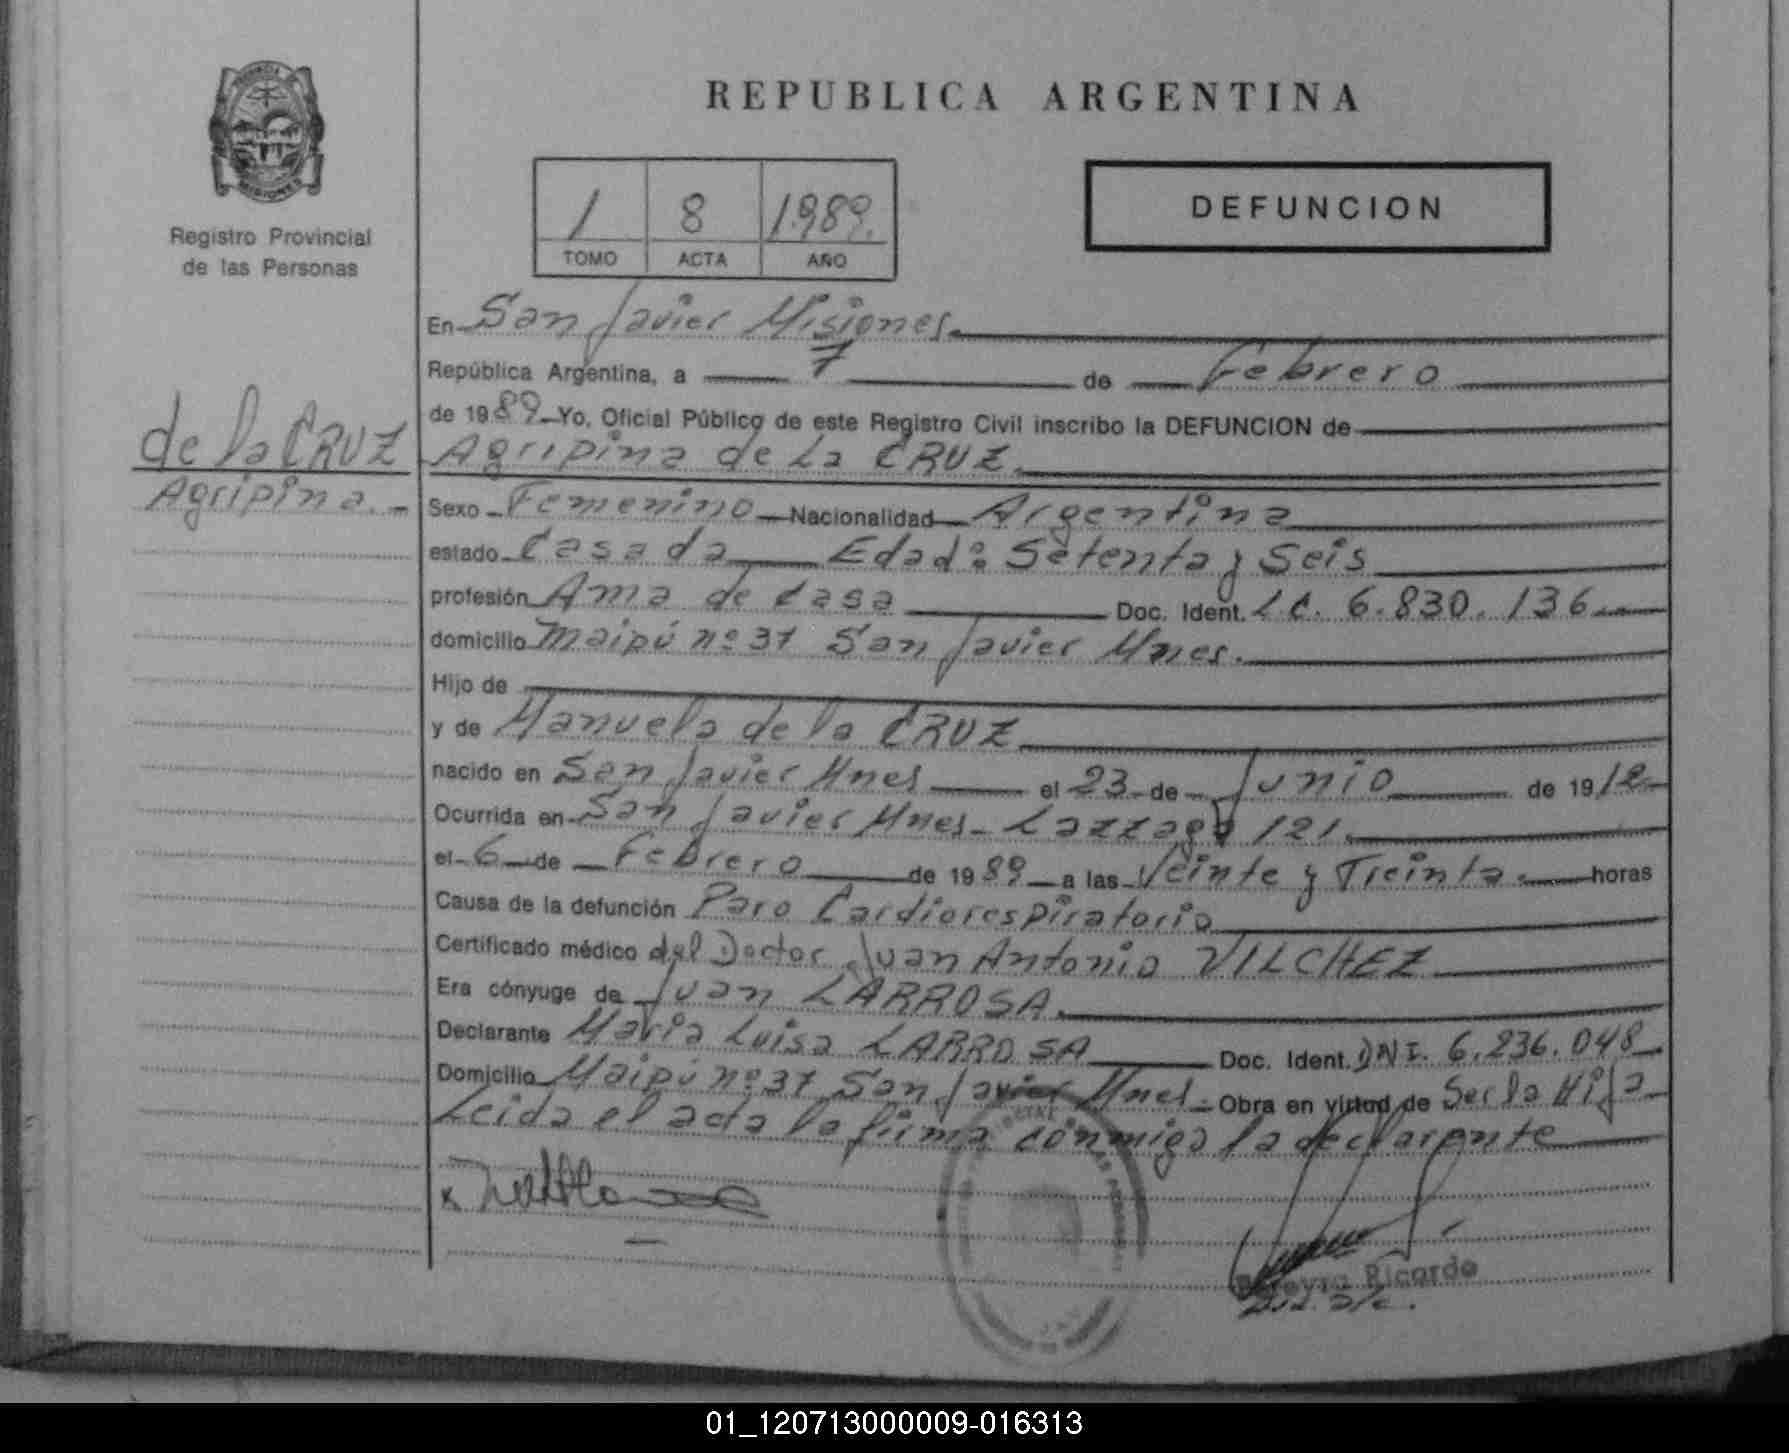 PROVINCIA DE
MISIONES
Registro Provincial
de las Personas
de la CRUZ
Agripina.-
REPUBLICA ARGENTINA
1 8 1989.
TOMO ACTA AÑO
DEFUNCION
En San Javier Misiones.
República Argentina, a 7 de Febrero
de 1989 Yo, Oficial Público de este Registro Civil inscribo la DEFUNCION de
Agripina de La CRUZ.
Sexo Femenino Nacionalidad Argentina
estado Casada Edad: Setenta y Seis
profesión Ama de Casa Doc. Ident. L.C. 6.830.136
domicilio Maipú nº 37 San Javier Mnes.
Hijo de
y de Manuela de la CRUZ
nacido en San Javier Mnes el 23 de Junio de 1912
Ocurrida en San Javier Mnes- Lazzaga 121.
el 6 de Febrero de 1989 a las Veinte y Treinta. horas
Causa de la defunción Paro Cardiorespiratorio
Certificado médico del Doctor Juan Antonio VILCHEZ
Era cónyuge de Juan LARROSA.
Declarante Maria Luisa LARROSA Doc. Ident. DNI. 6.236.048
Domicilio Maipú nº 37 San Javier Mnes. Obra en virtud de Ser la Hija
Leida el acta la firma conmigo la declarante
x
Pereyra Ricardo
01_120713000009-016313